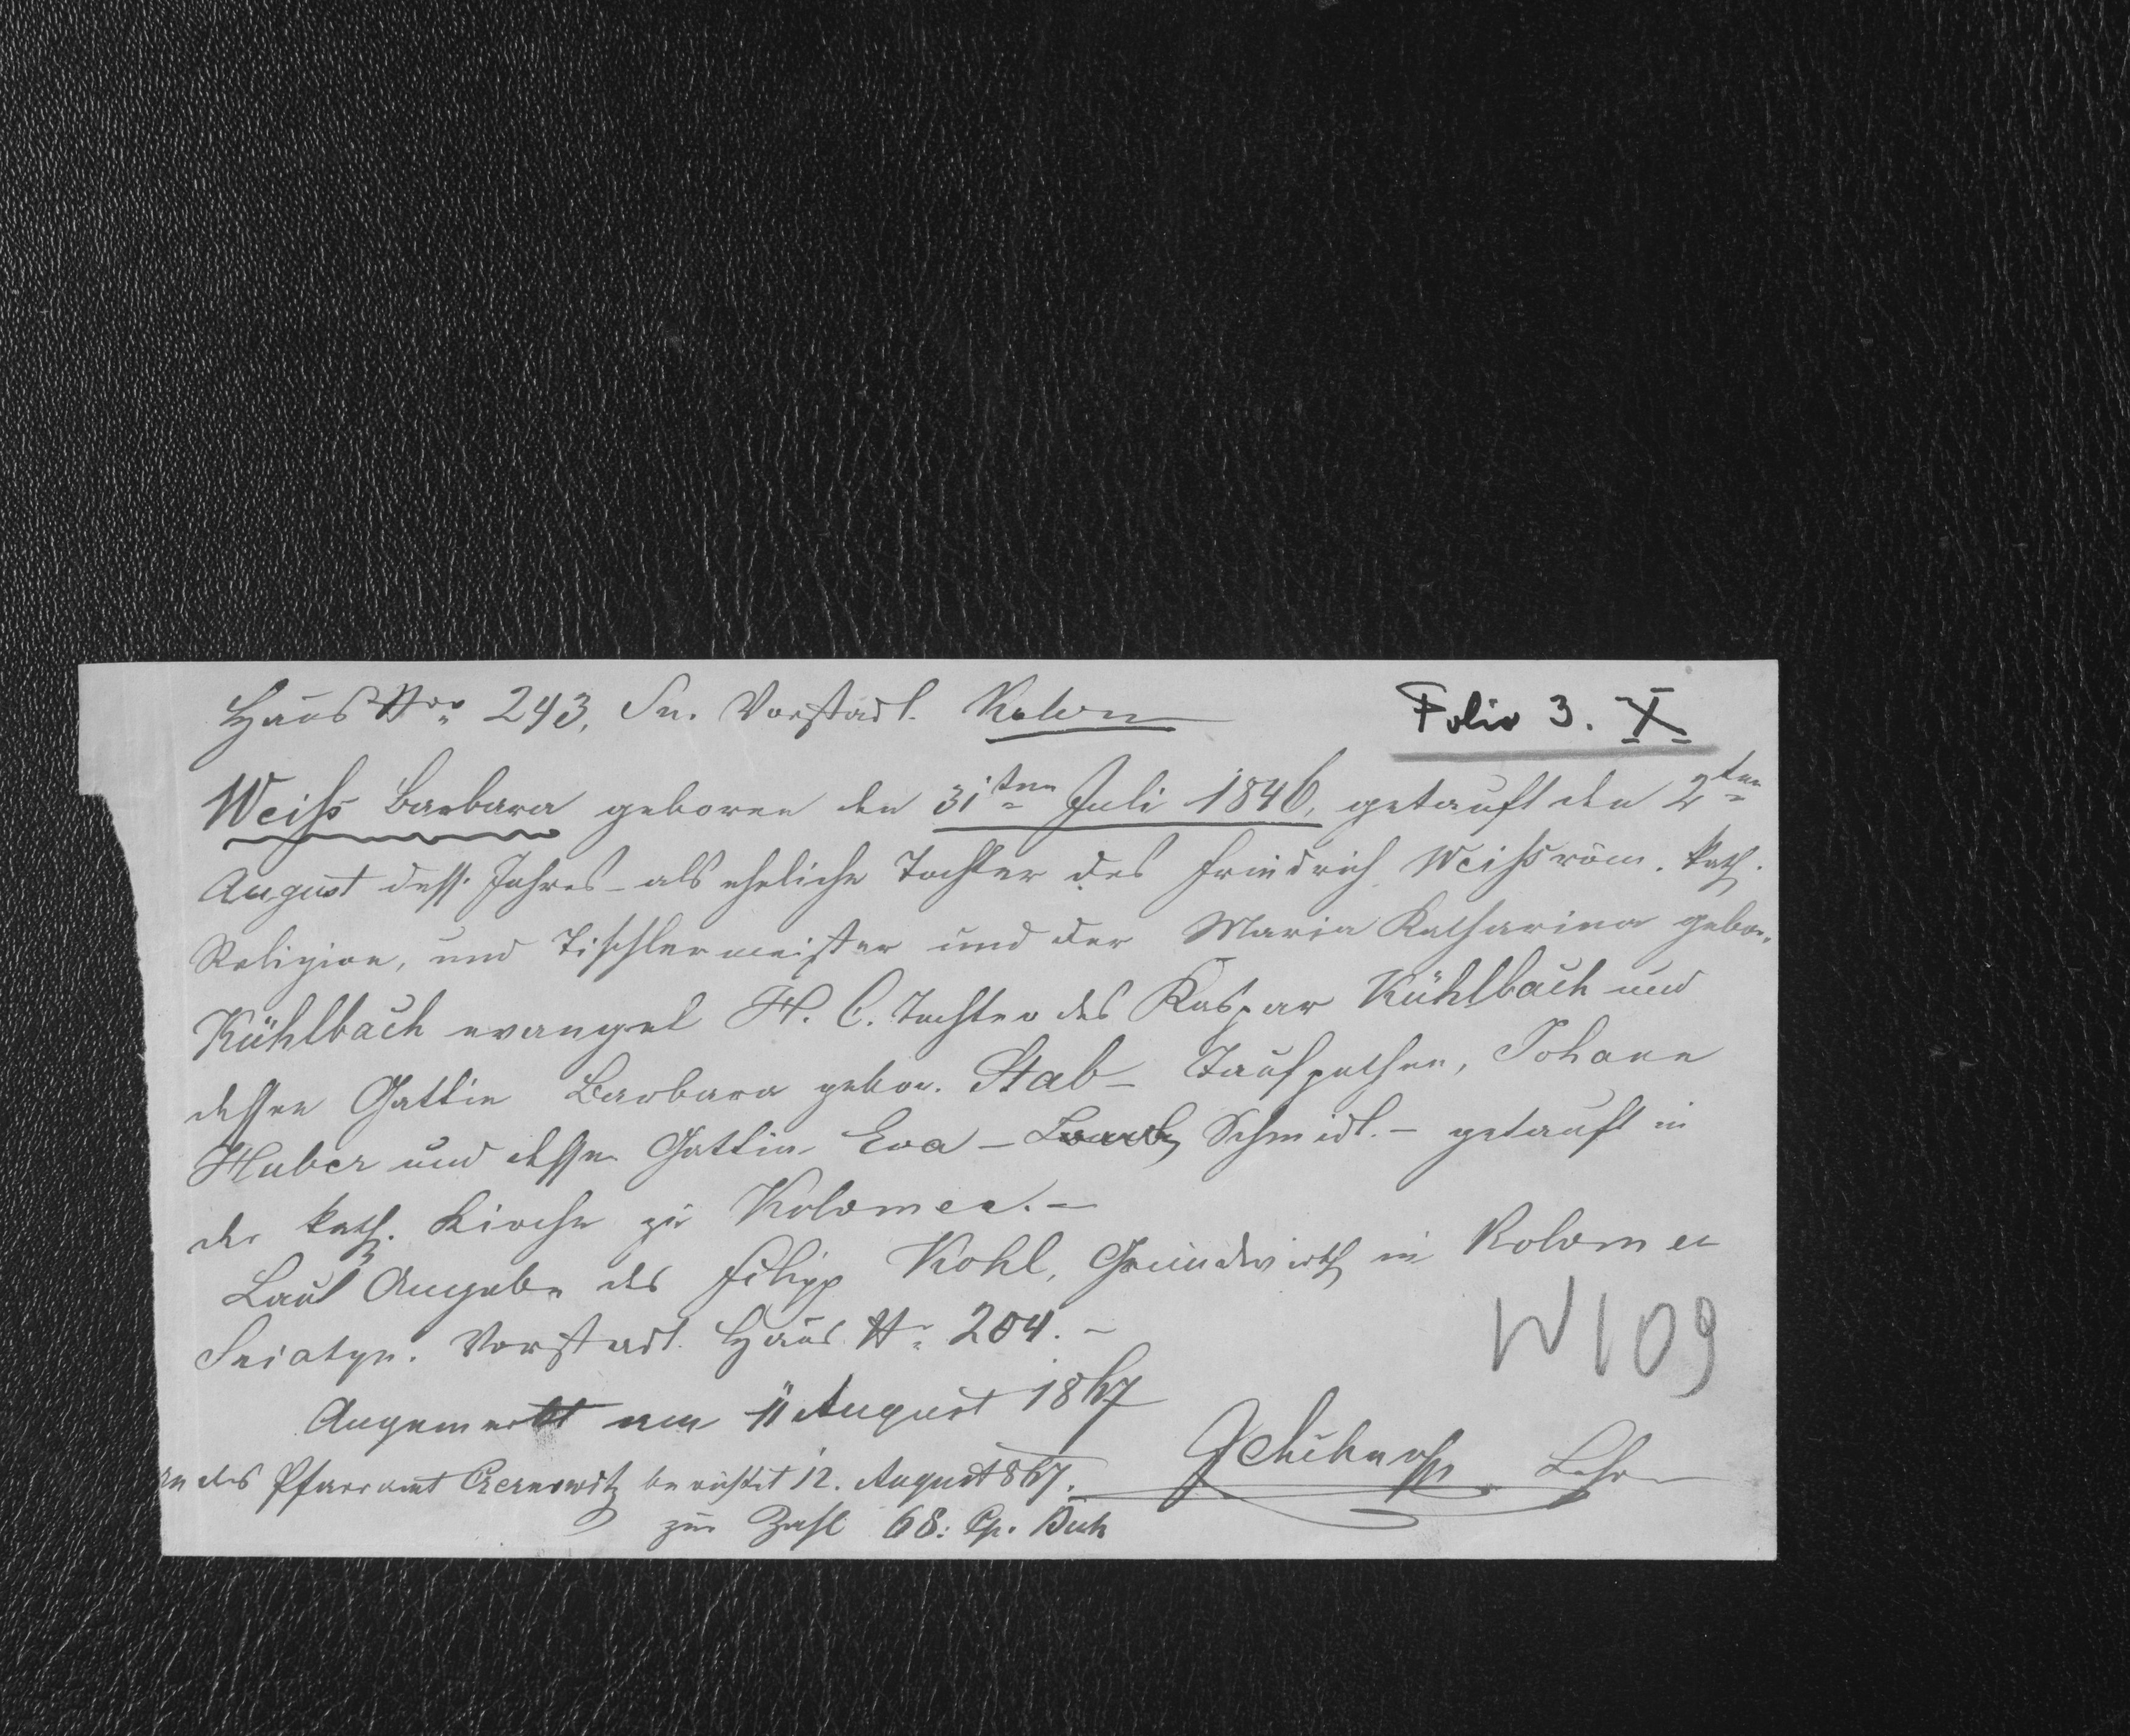 Haus Nro 243, Sn. Vorstadt. Kolom Folio 3. X
Weiß Barbara geboren den 31ten Juli 1846, getauft den 2ten
August dess. Jahres – als eheliche Tochter des Friedrich Weiß röm. kath.
Religion, und Tischlermeister und der Maria Katharina gebor.
Kühlbach evangel H. C. Tochter des Kaspar Kühlbach und
dessen Gattin Barbara gebor. Stab – Taufpathen, Johann
Huber und dessen Gattin Eva – Schmidt. – getauft in
der kath. Kirche zu Kolomea. –
Laut Angabe des Filipp Kohl, Grundwirth in Kolomea
Sniatyn. Vorstadt Haus Nr 204. –
Angemerkt am 11 August 1867
An das Pfarramt Czernowitz berichtet 12. August 867. Lehrer
zur Zahl 68:
W 109